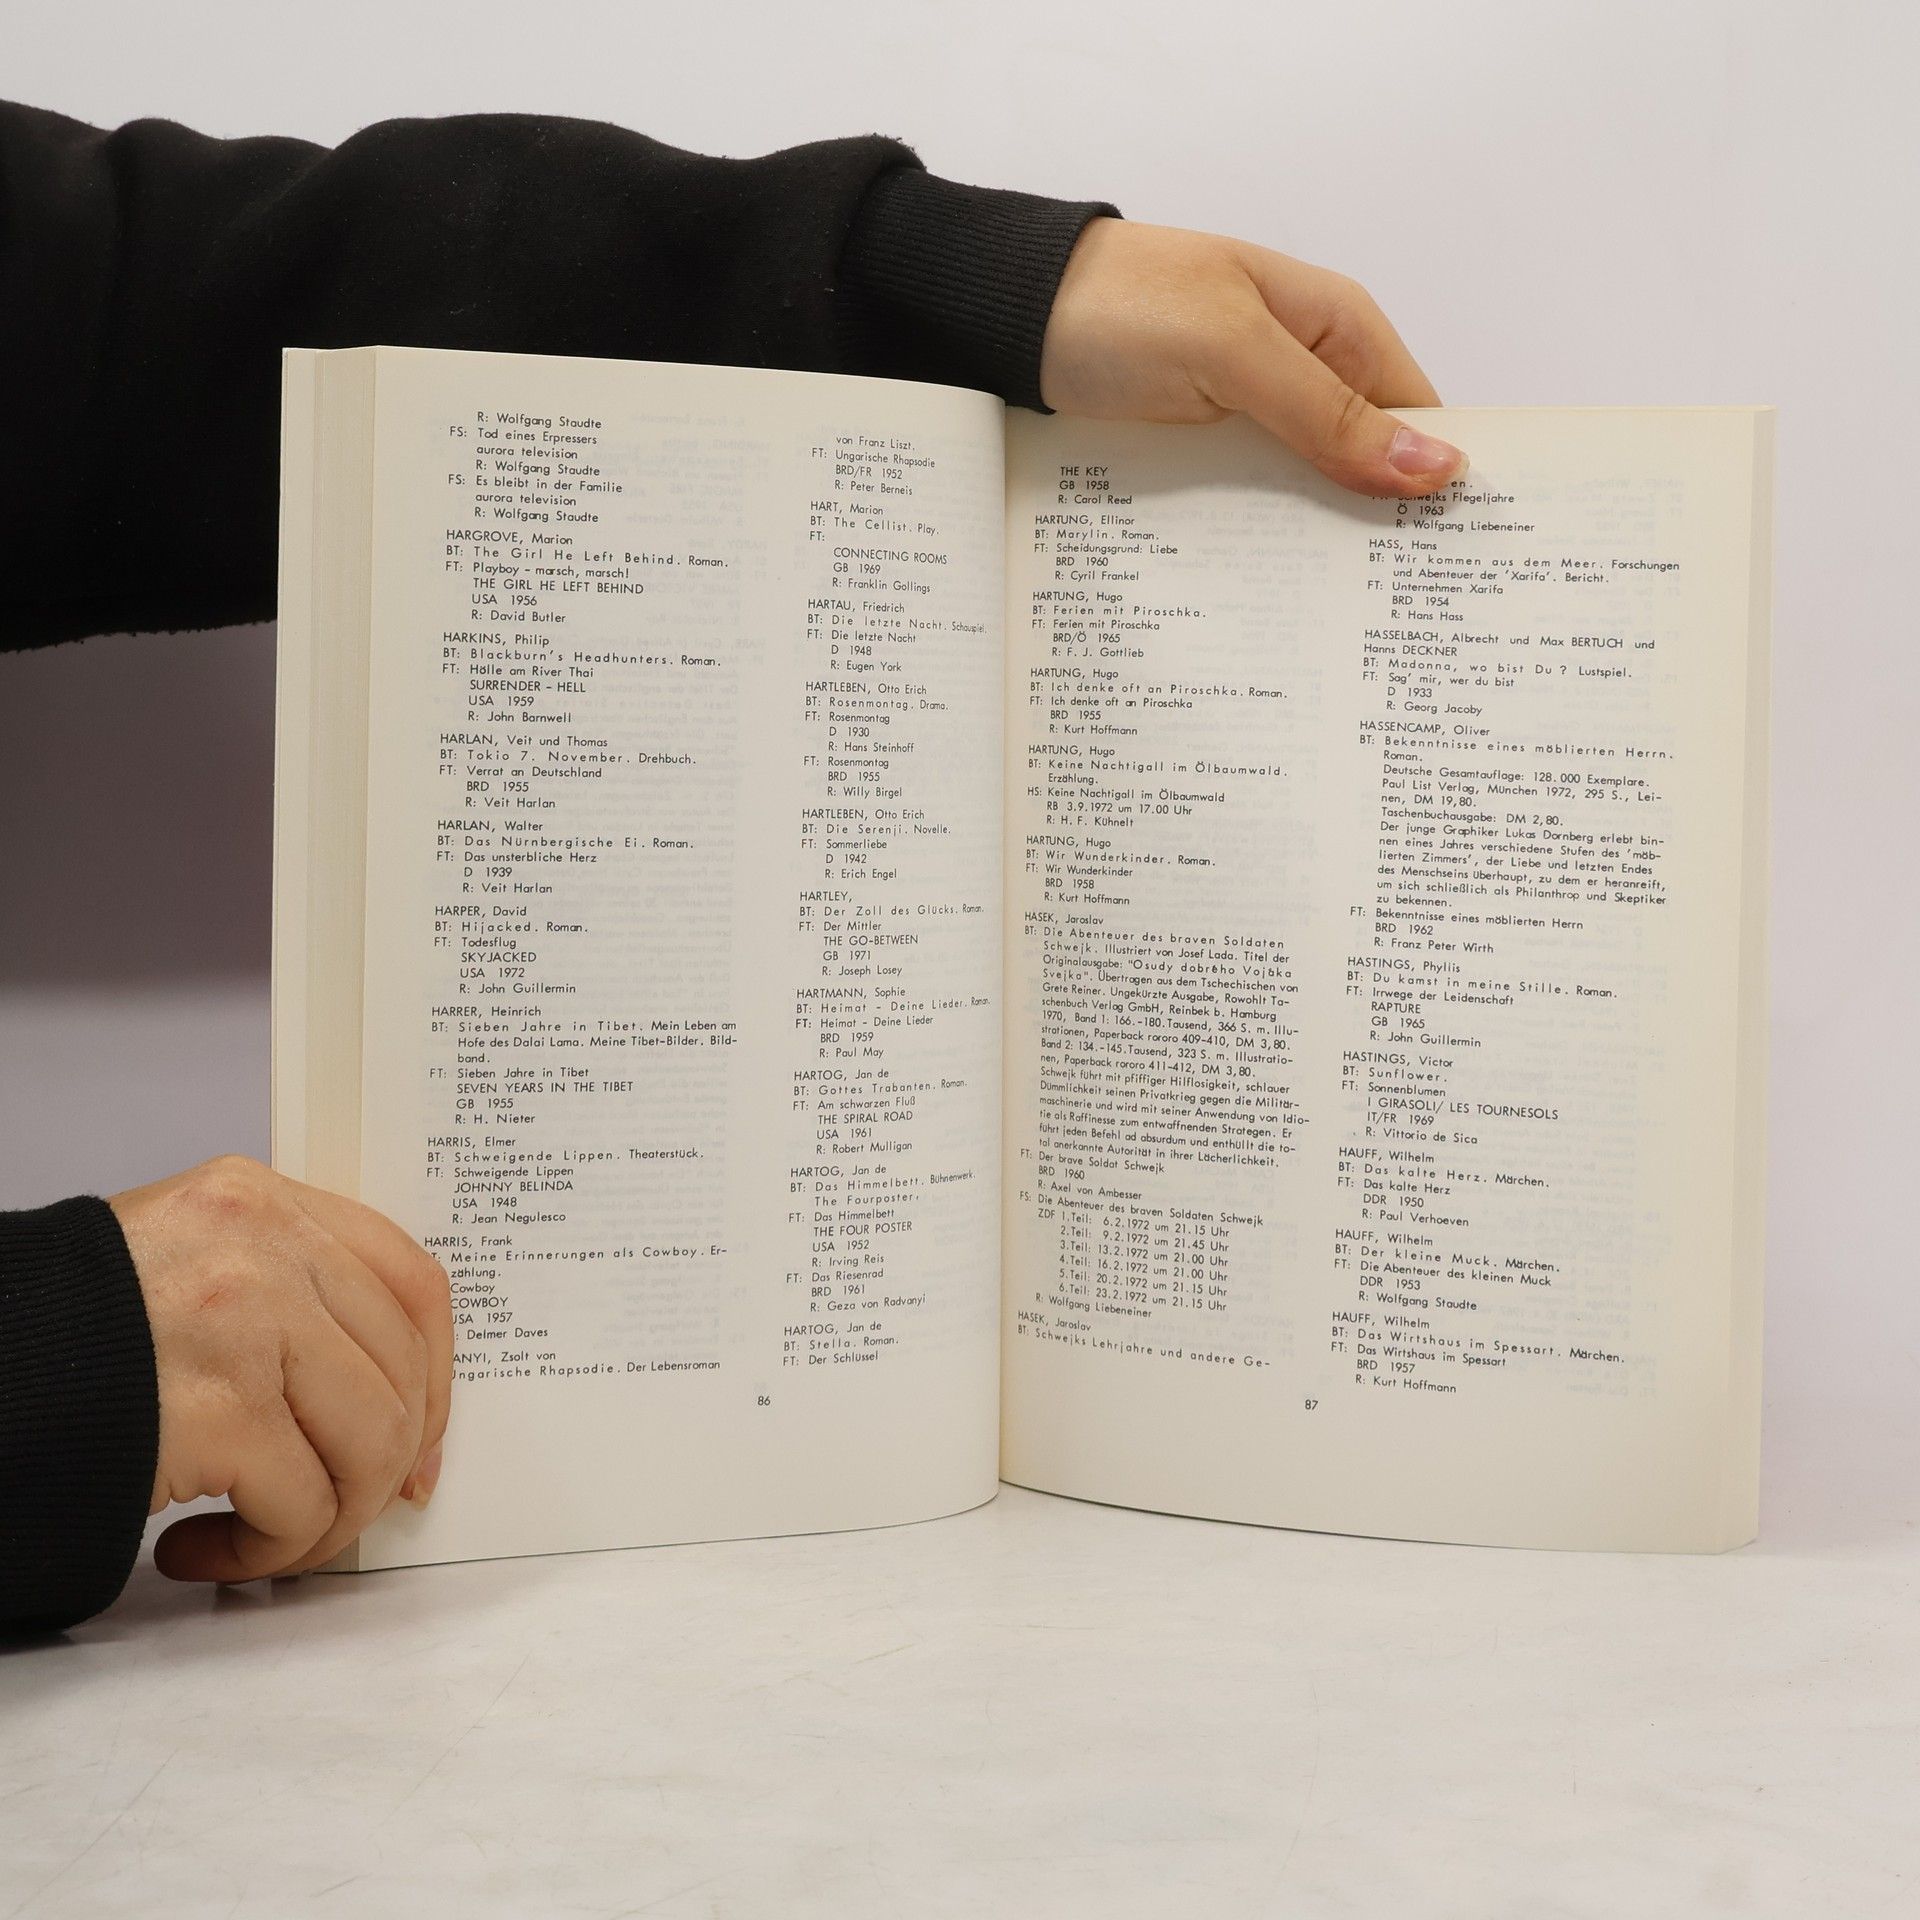 R: Wolfgang Staudte
FS: Tod eines Erpressers
aurora television
R: Wolfgang Staudte
FS: Es bleibt in der Familie
aurora television
R: Wolfgang Staudte
HARGROVE, Marion
BT: The Girl He Left Behind. Roman.
FT: Playboy - marsch, marsch!
THE GIRL HE LEFT BEHIND
USA 1956
R: David Butler
HARKINS, Philip
BT: Blackburn's Headhunters. Roman.
FT: Hölle am River Thai
SURRENDER - HELL
USA 1959
R: John Barnwell
HARLAN, Veit und Thomas
BT: Tokio 7. November. Drehbuch.
FT: Verrat an Deutschland
BRD 1955
R: Veit Harlan
HARLAN, Walter
BT: Das Nürnbergische Ei. Roman.
FT: Das unsterbliche Herz
D 1939
R: Veit Harlan
HARPER, David
BT: Hijacked. Roman.
FT: Todesflug
SKYJACKED
USA 1972
R: John Guillermin
HARRER, Heinrich
BT: Sieben Jahre in Tibet. Mein Leben am
Hofe des Dalai Lama. Meine Tibet-Bilder. Bild-
band.
FT: Sieben Jahre in Tibet
SEVEN YEARS IN THE TIBET
GB 1955
R: H. Nieter
HARRIS, Elmer
BT: Schweigende Lippen. Theaterstück.
FT: Schweigende Lippen
JOHNNY BELINDA
USA 1948
R: Jean Negulesco
HARRIS, Frank
T: Meine Erinnerungen als Cowboy. Er-
zählung.
Cowboy
COWBOY
USA 1957
: Delmer Daves
ANYI, Zsolt von
ngarische Rhapsodie. Der Lebensroman
von Franz Liszt.
FT: Ungarische Rhapsodie
BRD/FR 1952
R: Peter Berneis
HART, Marion
BT: The Cellist. Play.
FT:
CONNECTING ROOMS
GB 1969
R: Franklin Gollings
HARTAU, Friedrich
BT: Die letzte Nacht. Schauspiel.
FT: Die letzte Nacht
D 1948
R: Eugen York
HARTLEBEN, Otto Erich
BT: Rosenmontag. Drama.
FT: Rosenmontag
D 1930
R: Hans Steinhoff
FT: Rosenmontag
BRD 1955
R: Willy Birgel
HARTLEBEN, Otto Erich
BT: Die Serenji. Novelle.
FT: Sommerliebe
D 1942
R: Erich Engel
HARTLEY,
BT: Der Zoll des Glücks. Roman.
FT: Der Mittler
THE GO-BETWEEN
GB 1971
R: Joseph Losey
HARTMANN, Sophie
BT: Heimat - Deine Lieder. Roman.
FT: Heimat - Deine Lieder
BRD 1959
R: Paul May
HARTOG, Jan de
BT: Gottes Trabanten. Roman.
FT: Am schwarzen Fluß
THE SPIRAL ROAD
USA 1961
R: Robert Mulligan
HARTOG, Jan de
BT: Das Himmelbett. Bühnenwerk.
The Fourposter.
FT: Das Himmelbett
THE FOUR POSTER
USA 1952
R: Irving Reis
FT: Das Riesenrad
BRD 1961
R: Geza von Radvanyi
HARTOG, Jan de
BT: Stella. Roman.
FT: Der Schlüssel
86
THE KEY
GB 1958
R: Carol Reed
HARTUNG, Ellinor
BT: Marylin. Roman.
FT: Scheidungsgrund: Liebe
BRD 1960
R: Cyril Frankel
HARTUNG, Hugo
BT: Ferien mit Piroschka.
FT: Ferien mit Piroschka
BRD/Ö 1965
R: F. J. Gottlieb
HARTUNG, Hugo
BT: Ich denke oft an Piroschka. Roman.
FT: Ich denke oft an Piroschka
BRD 1955
R: Kurt Hoffmann
HARTUNG, Hugo
BT: Keine Nachtigall im Ölbaumwald.
Erzählung.
HS: Keine Nachtigall im Ölbaumwald
RB 3.9.1972 um 17.00 Uhr
R: H. F. Kühnelt
HARTUNG, Hugo
BT: Wir Wunderkinder. Roman.
FT: Wir Wunderkinder
BRD 1958
R: Kurt Hoffmann
HASEK, Jaroslav
BT: Die Abenteuer des braven Soldaten
Schwejk. Illustriert von Josef Lada. Titel der
Originalausgabe: "Osudy dobrého Vojáka
Svejka". Übertragen aus dem Tschechischen von
Grete Reiner. Ungekürzte Ausgabe, Rowohlt Ta-
schenbuch Verlag GmbH, Reinbek b. Hamburg
1970, Band 1: 166.-180.Tausend, 366 S. m. Illu-
strationen, Paperback rororo 409-410, DM 3,80.
Band 2: 134.-145.Tausend, 323 S. m. Illustratio-
nen, Paperback rororo 411-412, DM 3,80.
Schwejk führt mit pfiffiger Hilflosigkeit, schlauer
Dümmlichkeit seinen Privatkrieg gegen die Militär-
maschinerie und wird mit seiner Anwendung von Idio-
tie als Raffinesse zum entwaffnenden Strategen. Er
führt jeden Befehl ad absurdum und enthüllt die to-
tal anerkannte Autorität in ihrer Lächerlichkeit.
FT: Der brave Soldat Schwejk
BRD 1960
R: Axel von Ambesser
FS: Die Abenteuer des braven Soldaten Schwejk
ZDF 1.Teil: 6.2.1972 um 21.15 Uhr
2.Teil: 9.2.1972 um 21.45 Uhr
3.Teil: 13.2.1972 um 21.00 Uhr
4.Teil: 16.2.1972 um 21.00 Uhr
5.Teil: 20.2.1972 um 21.15 Uhr
6.Teil: 23.2.1972 um 21.15 Uhr
R: Wolfgang Liebeneiner
HASEK, Jaroslav
BT: Schwejks Lehrjahre und andere Ge-
en.
Schwejks Flegeljahre
Ö 1963
R: Wolfgang Liebeneiner
HASS, Hans
BT: Wir kommen aus dem Meer. Forschungen
und Abenteuer der 'Xarifa'. Bericht.
FT: Unternehmen Xarifa
BRD 1954
R: Hans Hass
HASSELBACH, Albrecht und Max BERTUCH und
Hanns DECKNER
BT: Madonna, wo bist Du ? Lustspiel.
FT: Sag' mir, wer du bist
D 1933
R: Georg Jacoby
HASSENCAMP, Oliver
BT: Bekenntnisse eines möblierten Herrn.
Roman.
Deutsche Gesamtauflage: 128.000 Exemplare.
Paul List Verlag, München 1972, 295 S., Lei-
nen, DM 19,80.
Taschenbuchausgabe: DM 2,80.
Der junge Graphiker Lukas Dornberg erlebt bin-
nen eines Jahres verschiedene Stufen des 'möb-
lierten Zimmers', der Liebe und letzten Endes
des Menschseins überhaupt, zu dem er heranreift,
um sich schließlich als Philanthrop und Skeptiker
zu bekennen.
FT: Bekenntnisse eines möblierten Herrn
BRD 1962
R: Franz Peter Wirth
HASTINGS, Phyllis
BT: Du kamst in meine Stille. Roman.
FT: Irrwege der Leidenschaft
RAPTURE
GB 1965
R: John Guillermin
HASTINGS, Victor
BT: Sunflower.
FT: Sonnenblumen
I GIRASOLI/ LES TOURNESOLS
IT/FR 1969
R: Vittorio de Sica
HAUFF, Wilhelm
BT: Das kalte Herz. Märchen.
FT: Das kalte Herz
DDR 1950
R: Paul Verhoeven
HAUFF, Wilhelm
BT: Der kleine Muck. Märchen.
FT: Die Abenteuer des kleinen Muck
DDR 1953
R: Wolfgang Staudte
HAUFF, Wilhelm
BT: Das Wirtshaus im Spessart. Märchen.
FT: Das Wirtshaus im Spessart
BRD 1957
R: Kurt Hoffmann
87